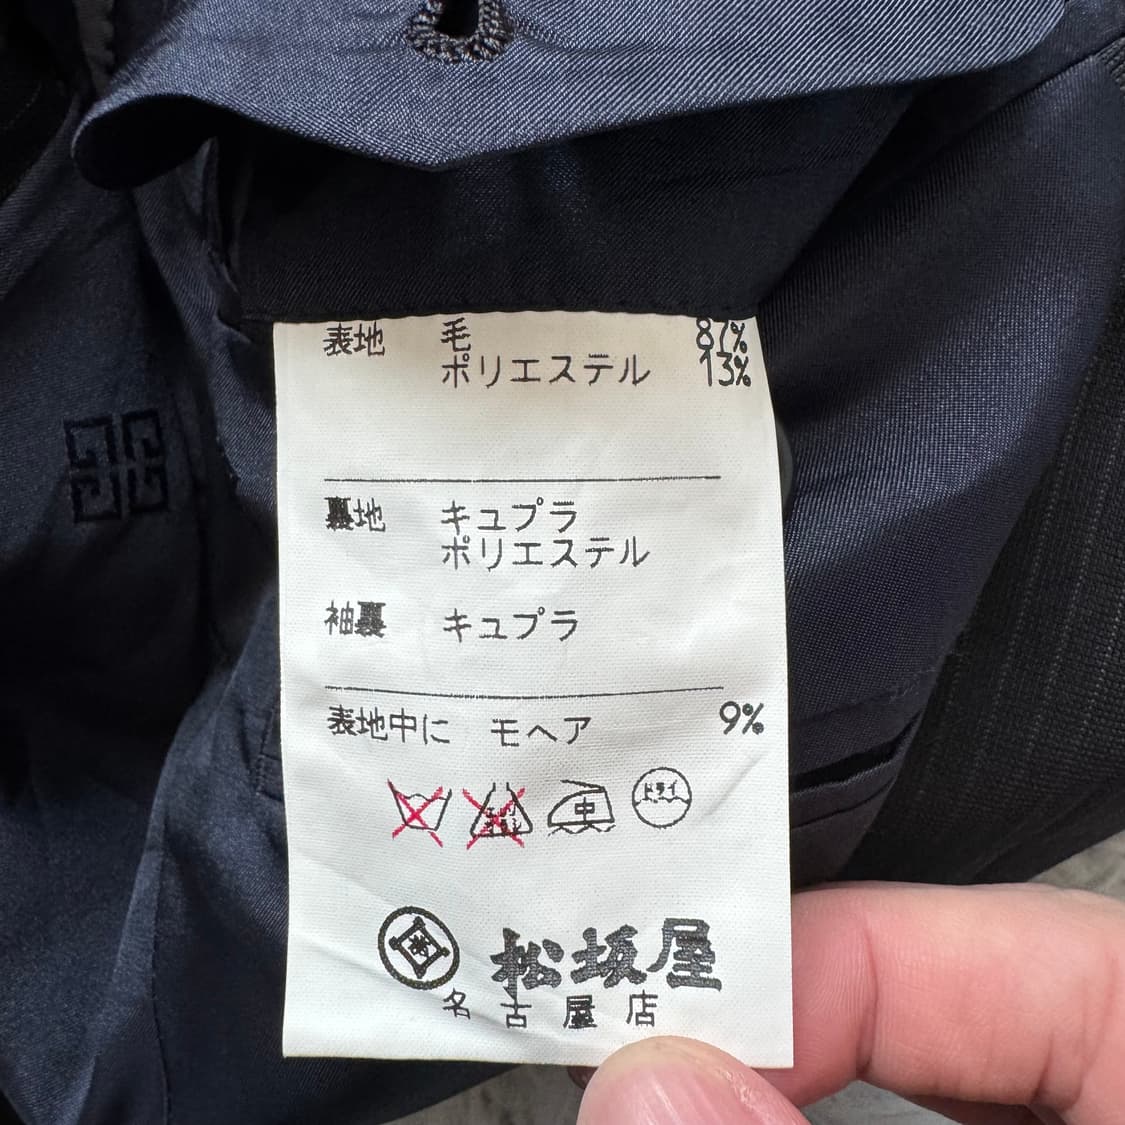 表地 毛 87%
ポリエステル 13%
裏地 キュプラ
ポリエステル
袖裏 キュプラ
表地中に モヘア 9%
中 ドライ
松坂屋
名古屋店